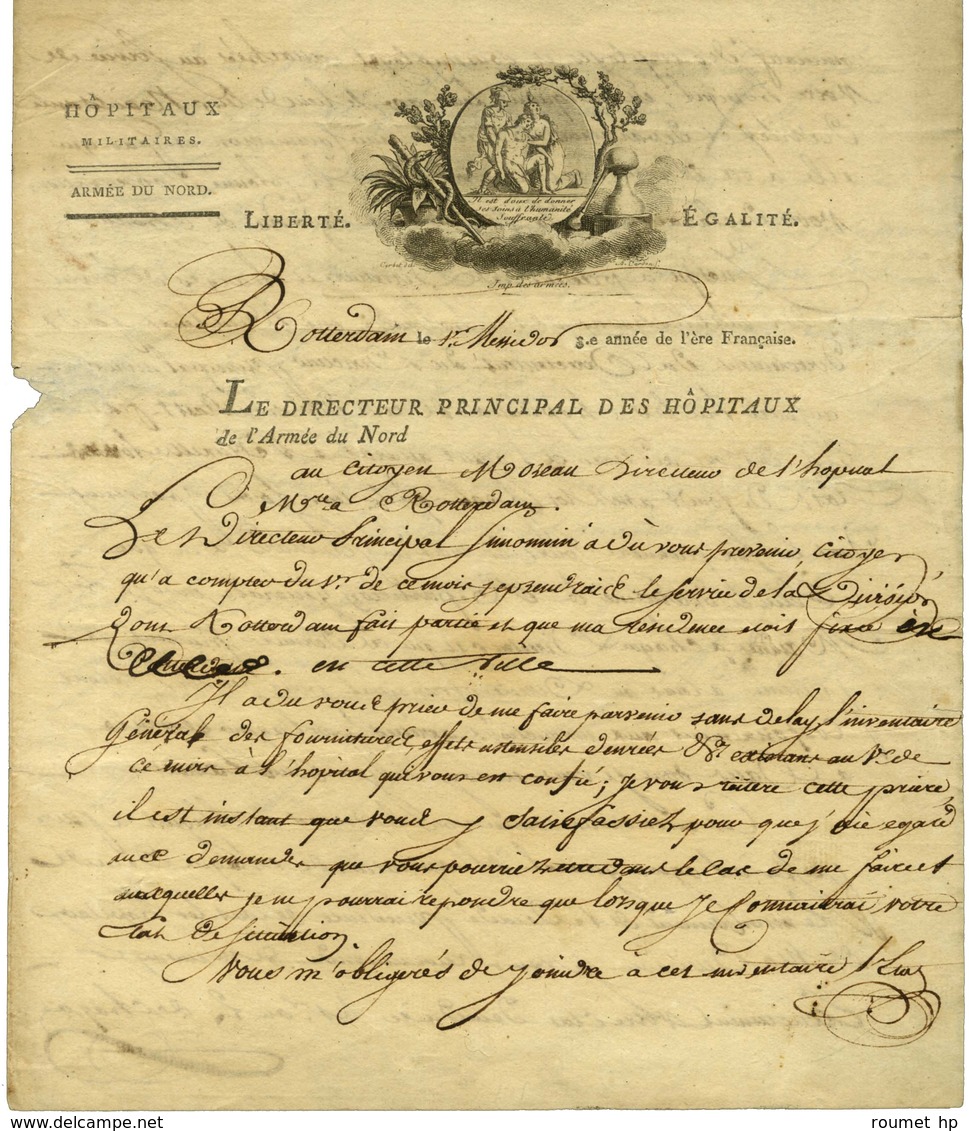 HÔPITAUX
MILITAIRES.
ARMÉE DU NORD.
Il est doux de donner
ses soins à l'humanité
Souffrante
LIBERTÉ. ÉGALITÉ.
Imp. des armées.
Rotterdam le 1er Messidor 3.e année de l'ère Française.
LE DIRECTEUR PRINCIPAL DES HÔPITAUX
de l'Armée du Nord
au Citoyen Moreau Directeur de l'hopital
Mre a Rotterdam.
Le Directeur Principal Simonnin a dû vous prevenir, Citoyen
qu'a compter du 1er de ce mois je prendrais le service de la Division
dont Rotterdam fait partie et que ma residence etoit fixée
en cette Ville
Il a du vous prier de me faire parvenir sans delay l'inventaire
Général des fournitures, effets ustensiles denrées &a existans au 1er de
ce mois à l'hopital qui vous est confié ; je vous réitère cette prière,
il est instant que vous y satisfassiez pour que j'aie egard
aux demandes que vous pourriez être dans le cas de me faire et
auxquelles je ne pourrai repondre que lorsque je connaitrai votre
etat de situation.
Vous m'obligerés de joindre à cet inventaire l'Etat
roumet hp